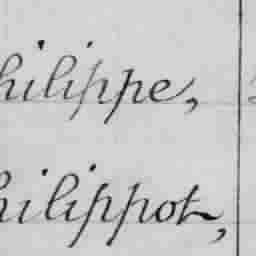 hilippe,
hilippot,